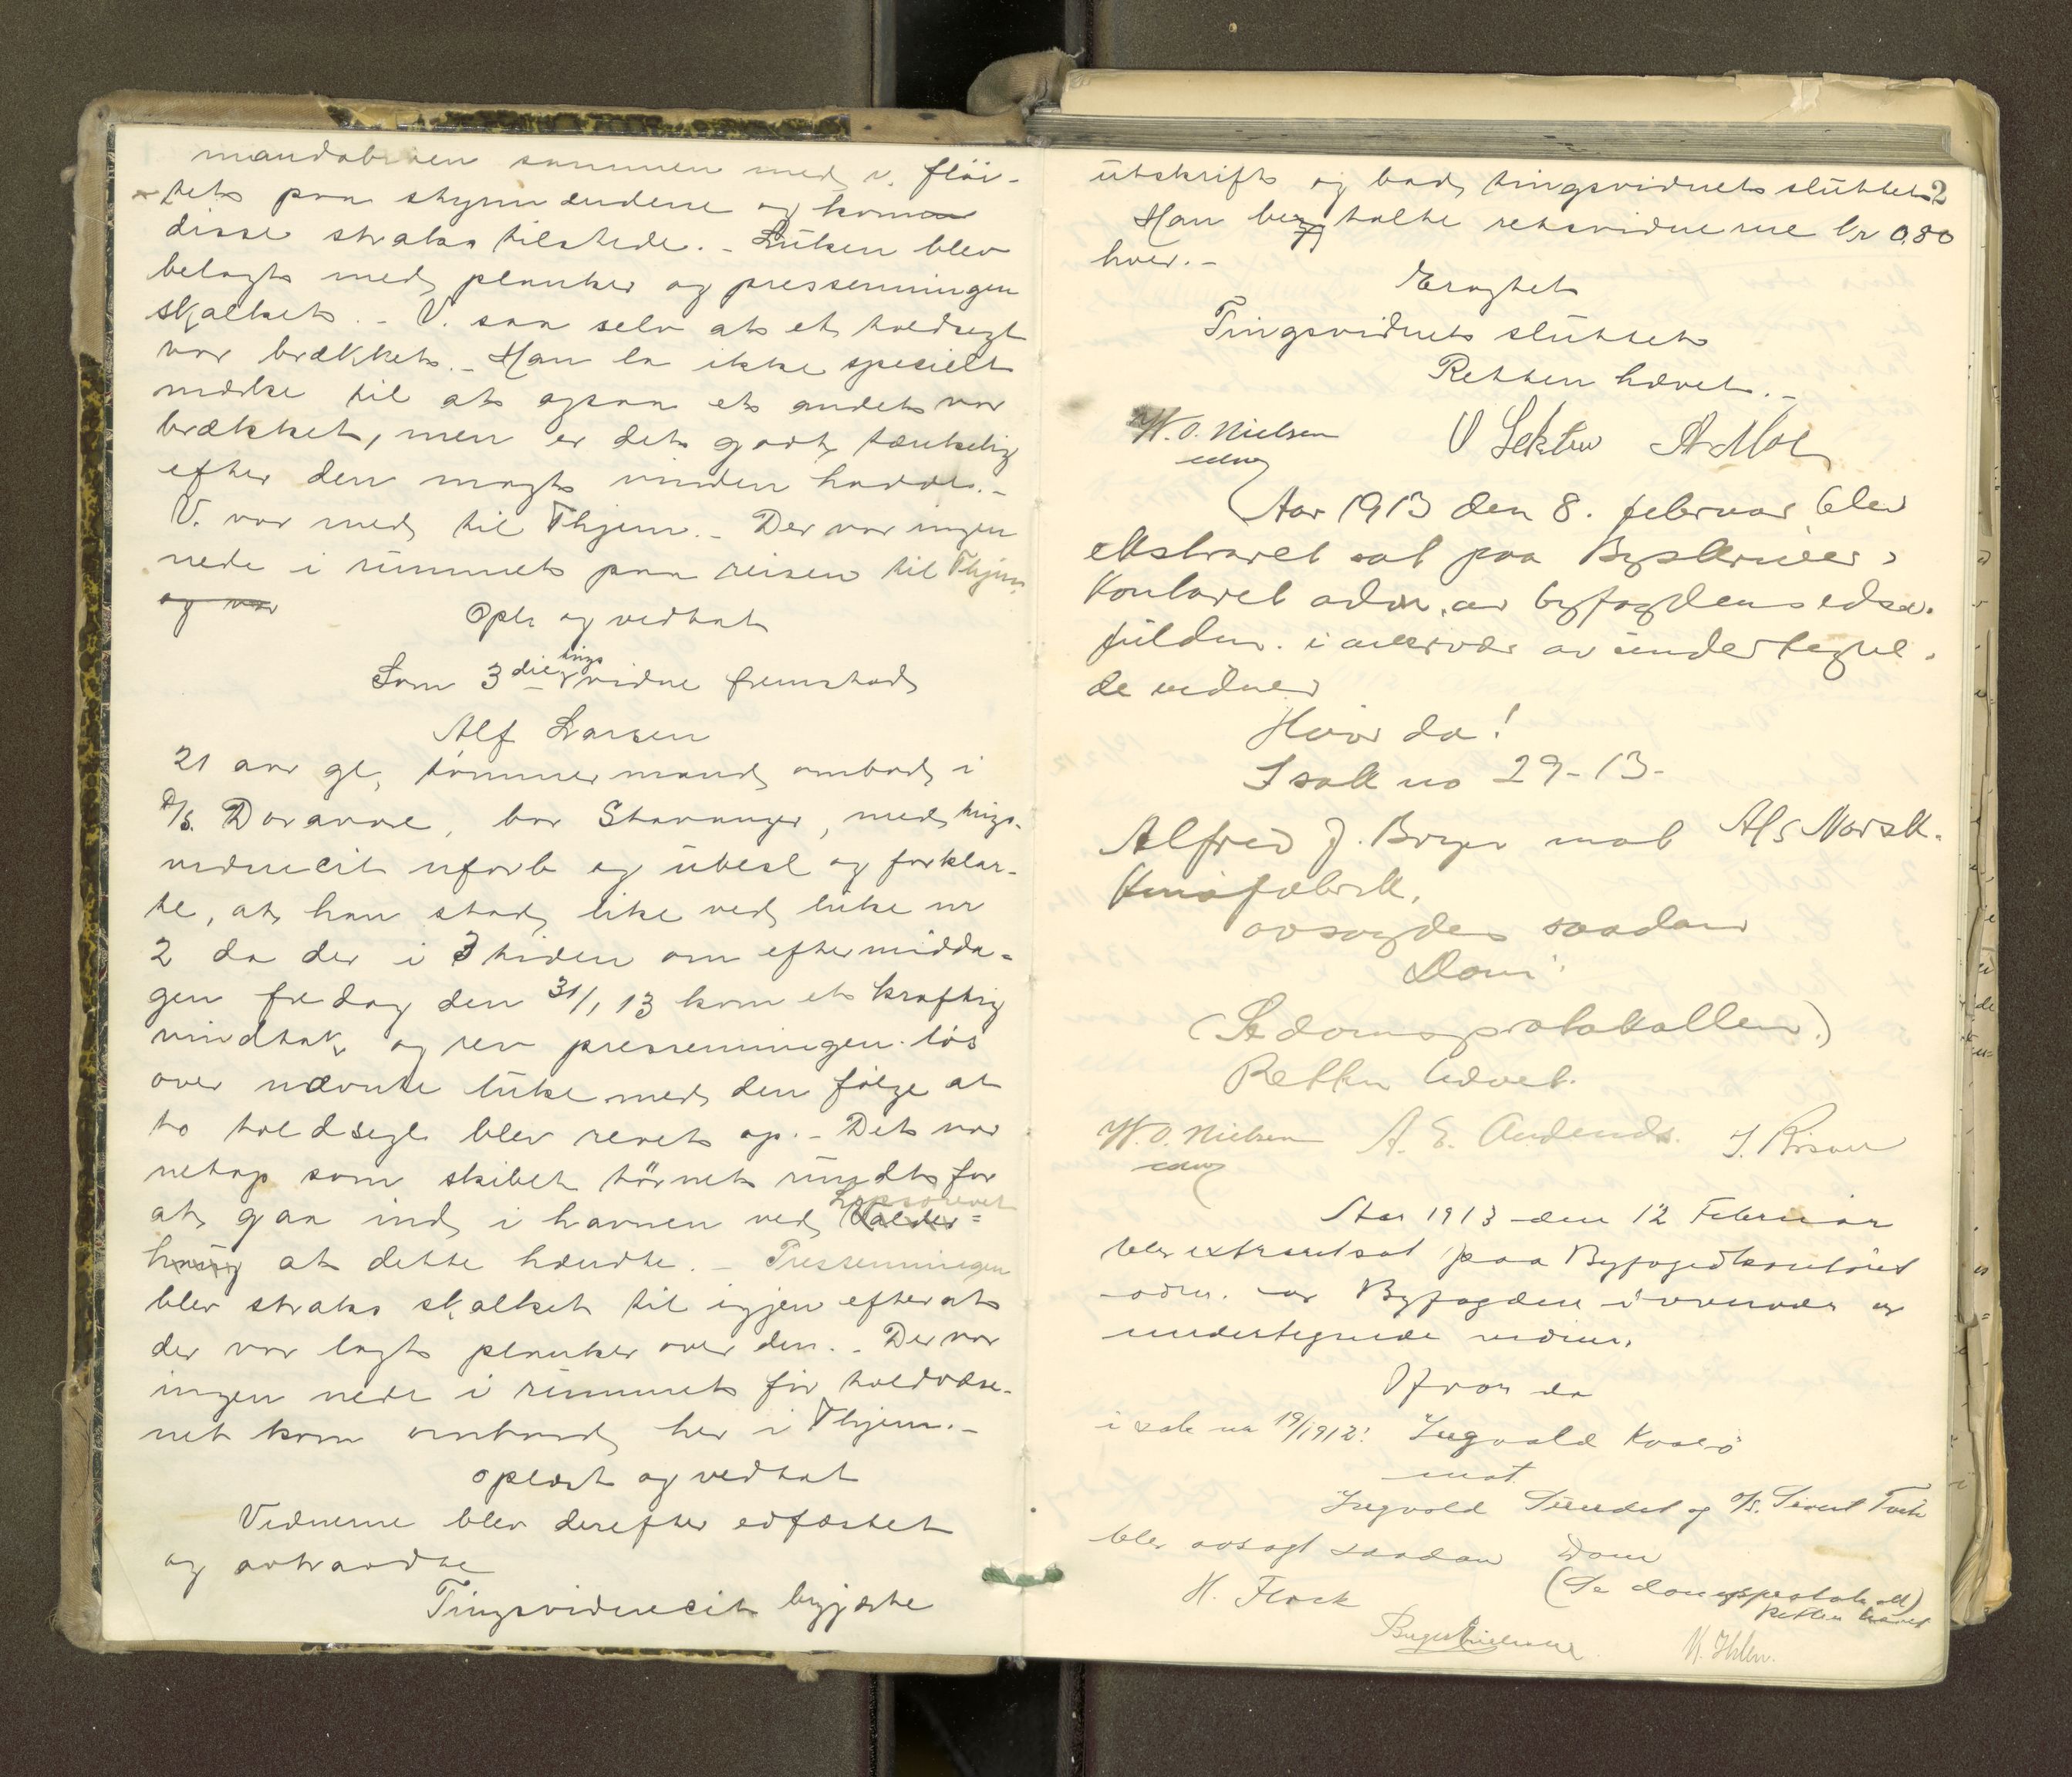 mandobroen sammen med v. flöi-
tet paa styrmændene og kom
disse straks tilstede. - Luken blev
belagt med planker og pressenningen
skalket. - V. saa selv at et toldsegl
var brækket. - Han la ikke specielt
mærke til at ogsaa et andet var
brækket, men er det godt tænkelig
efter den magt vinden hadde. -
V. var med til Thjem. - Der var ingen
nede i rummet paa reisen til Thjem.
og var
Opl. og vedtat
Som 3die tings vidne fremstod
Alf Larsen
21 aar gl, tömmermand ombord i
D/S. , bor Stavanger, med tings-
vidnecit uforb og ubesl og forklar-
te, at han stod like ved luke nr
2 da der i 3 tiden om eftermidda-
gen fredag den 31/1 13 kom et kraftig
vindtak og rev pressenningen lös
over nævnte luke med den fölge at
to toldsegl blev revet op. - Det var
netop som skibet törnet rundt for
at gaa ind i havnen ved Lepsörevet Valder=
haug at dette hændte. - Pressenningen
blev straks skalket til igjen efterat
der var lagt planker over den. - Der var
ingen nede i rummet för toldvæse-
net kom ombord her i Thjem. -
oplæst og vedtat
Vidnerne blev derefter edfæstet
og avtraadte
Tingsvidnecit begjærte
utskrift og bad tingsvidnet sluttet 2
Han betalte retsvidnerne kr 0.80
hver. -
Eragtet
Tingsvidnet sluttet
Retten hævet. -
W. O. Nielsen
edsv
Aar 1913 den 8. februar blev
ekstraret sat paa Byskriver-
kontoret adm. av byfogdens edsv.
fuldm. i overvær av undertegne-
de vidner
Hvor da!
I sak no 29-13-
Alfred J. mot A/S Norsk-
fabrik,
avsagdes saadan
Dom:
(Se domsprotokollen.)
Retten hævet.
W. O. Nielsen
edsv
Aar 1913 den 12 Februar
blev extraret sat paa Byfogedkontoret
adm. av Byfogden i overvær av
undertegnede vidner.
Hvor da
i sak nr 19/1912: Ingvald
mot
Ingvald og
blev avsagt saadan Dom
(Se domsprotokoll)
Retten hævet
H. Flock